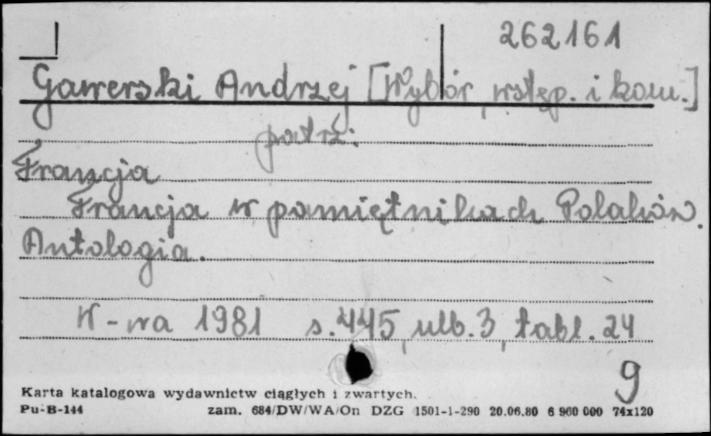 262161
Gawerski Andrzej [Wybór, wstęp. i kom.]
patrz:
Francja
Francja w pamiętnikach Polaków.
Antologia.
W-wa 1981 s. 445, ulb. 3, tabl. 24
9
Karta katalogowa wydawnictw ciągłych i zwartych.
Pu-B-144 zam. 684/DW/WA/On DZG 1501-1-290 20.06.80 6 960 000 74x120